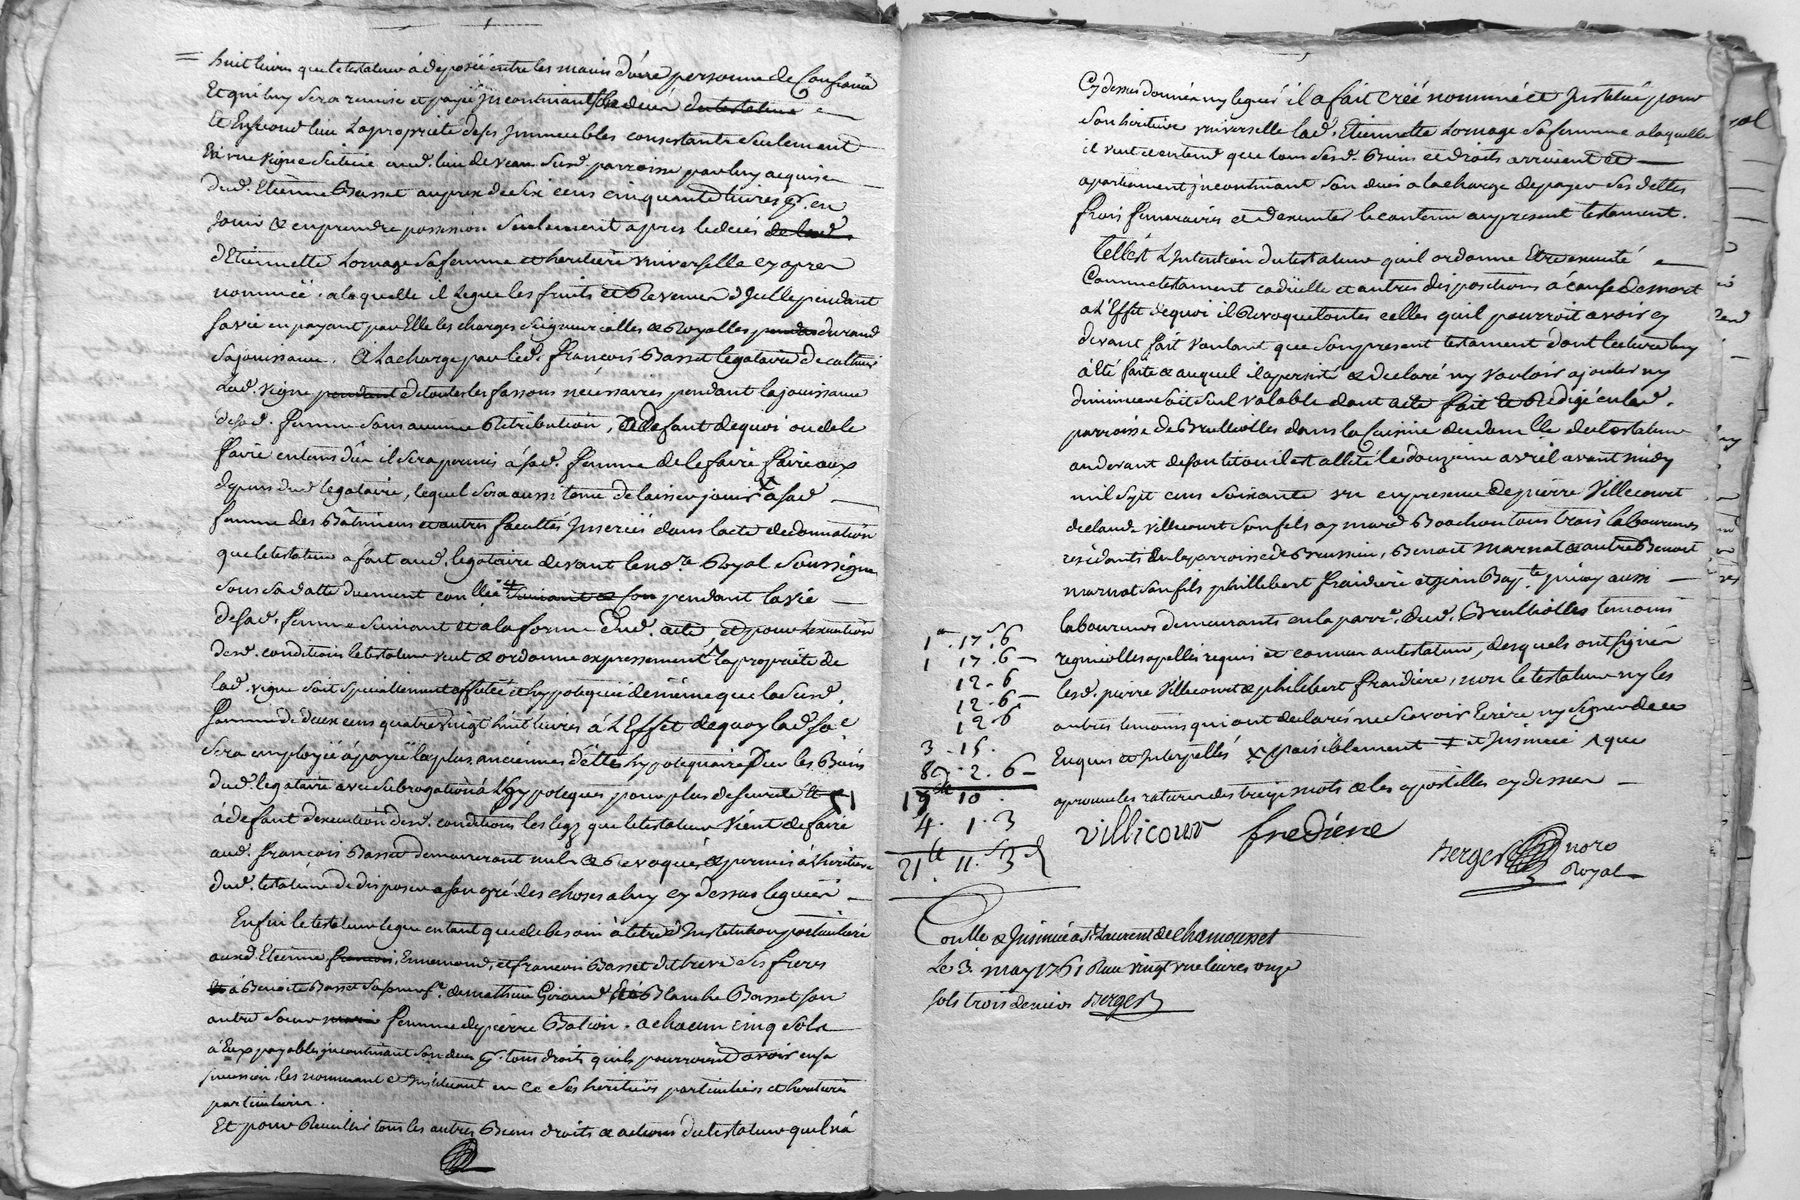 huit livres que le testateur a deposé entre les mains d'une personne de Confiance
Et qui luy sera remise et payé incontinant son deces du testateur
Et En second lieu la proprieté de ses Immeubles consistants seulement
En une vigne scituée aud. lieu de sud. parroisse par luy acquise
dud. Etienne Basset au prix de six cens cinquante livres pr. en
jouir & en prendre possession seulement apres le deces de lad.
d'Etiennette Lornage sa femme et heritiere universelle cy apres
nommée, a laquelle il legue les fruits et Revenus d'Icelle pendant
sa vie en payant par Elle les charges Seigneurialles & Royalles pendant durand
sa jouissance. A la charge par led. françois Basset legataire de cultiver
lad. vigne pendant de toutes les fassons nécéssaires pendant la jouissance
de sad. femme sans aucune Rétribution, A defaut de quoi ou de le
faire en tems dû il sera permis à sad. femme de le faire faire aux
depens dud. legataire, lequel sera aussi tenu de laisser jouir a sad.
femme des Bâtimens et autres facultés Inserées dans l'acte de donnation
que le testateur a fait aud. legataire devant le nore. Royal soussigné
sous sa datte duement conllé suivant & son pendant la vie
de sad. femme suivant et a la forme dud. acte, et pour l'execution
desd. conditions le testateur veut & ordonne expressement la proprieté de
lad. vigne soit spécialement affectée et hypotequée de même que la susd.
somme de deux cens quatre vingt huit livres à l'Effet de quoy lad. se.
sera employée a payer les plus anciennes dettes hypotequaires sur les Biens
dud. legataire avec subrogation à l'hypoteques pour plus de seureté
à défaut d'execution desd. conditions les legs que le testateur vient de faire
aud. françois Basset demeureront nuls & revoqués & permis à l'heritiere
dud. testateur de disposer a son gré des choses a luy cy dessus leguées
Enfin le testateur legue en tant que de besoin à titre d'Institution particuliere
auxd. Etienne, françois, Ennemond, et francois Basset dit breve ses freres
& à Benoite Basset sa sœur fe. de mathieu Giraud Et à Blanche Basset son
autre sœur marie femme de pierre Bation. a chacun cinq sols
à Eux payables incontinant son deces pr. tous droits quils pourroient avoir en sa
succession, les nommant et Instituant en ce ses heritiers particuliers et heritieres
particulieres.
Et pour Recuillir tous les autres Biens droits & actions du testateur quil n'a
Cy dessus donnés ny legués il a fait créé nommé et Institué pour
son heritiere universelle lad. Etiennette Lornage sa femme a laquelle
il veut et entend que tous sesd. Biens et droits arrivent et
apartiennent incontinant son deces a la charge de payer ses dettes
frais funeraires et d'executer le contenu au present testament.
Telle est l'Intention du testateur quil ordonne Etre executé
Comme testament codicille et autres dispositions à cause de mort
a l'Effet de quoi il Revoque toutes celles quil pourroit avoir cy
devant fait voulant que son present testament dont lecture luy
a été faite & auquel il a persisté & declaré ny vouloir ajouter ny
diminuer soit seul valable dont acte fait et Redigé en lad.
parroisse de Brullioles dans la Cuisine du dom.lle du testateur
au devant de son lit ou il est allité le douzieme avril avant midy
mil sept cens soixante un en presence de pierre Villecourt
declaude villecourt son fils aymard Boachon tous trois laboureurs
residants en la parroisse de Brussieu, Benoit Marnat & autre Benoit
marnat son fils phillibert fraidiere et jean Bapte. aussi
laboureurs demeurants en la parre. dud. Brullioles temoins
regnicolles apellés requis et connus au testateur, desquels ont signé
lesd. pierre Villecourt & philibert fraidiere, non le testateur ny les
autres temoins qui ont declarés ne scavoir Ecrire ny signer de ce
Enquis et Interpellés x paisiblement ‡ et Insinué ^ que
aprouvés les ratures des treize mots & les apostilles cy dessus
villicour fredière
Berger noro
Royal
1 . 17 . 6
1 17 . 6
12 . 6
12 . 6
12 . 6
3 . 15 .
8 . 2 . 6
10 .
4 . 1 . 3
21 . 11 . 3
Conllé & Insinué a St. Laurent de Chamousset
Le 3. may 1761 Reçu vingt une livres onze
sols trois deniers Berger